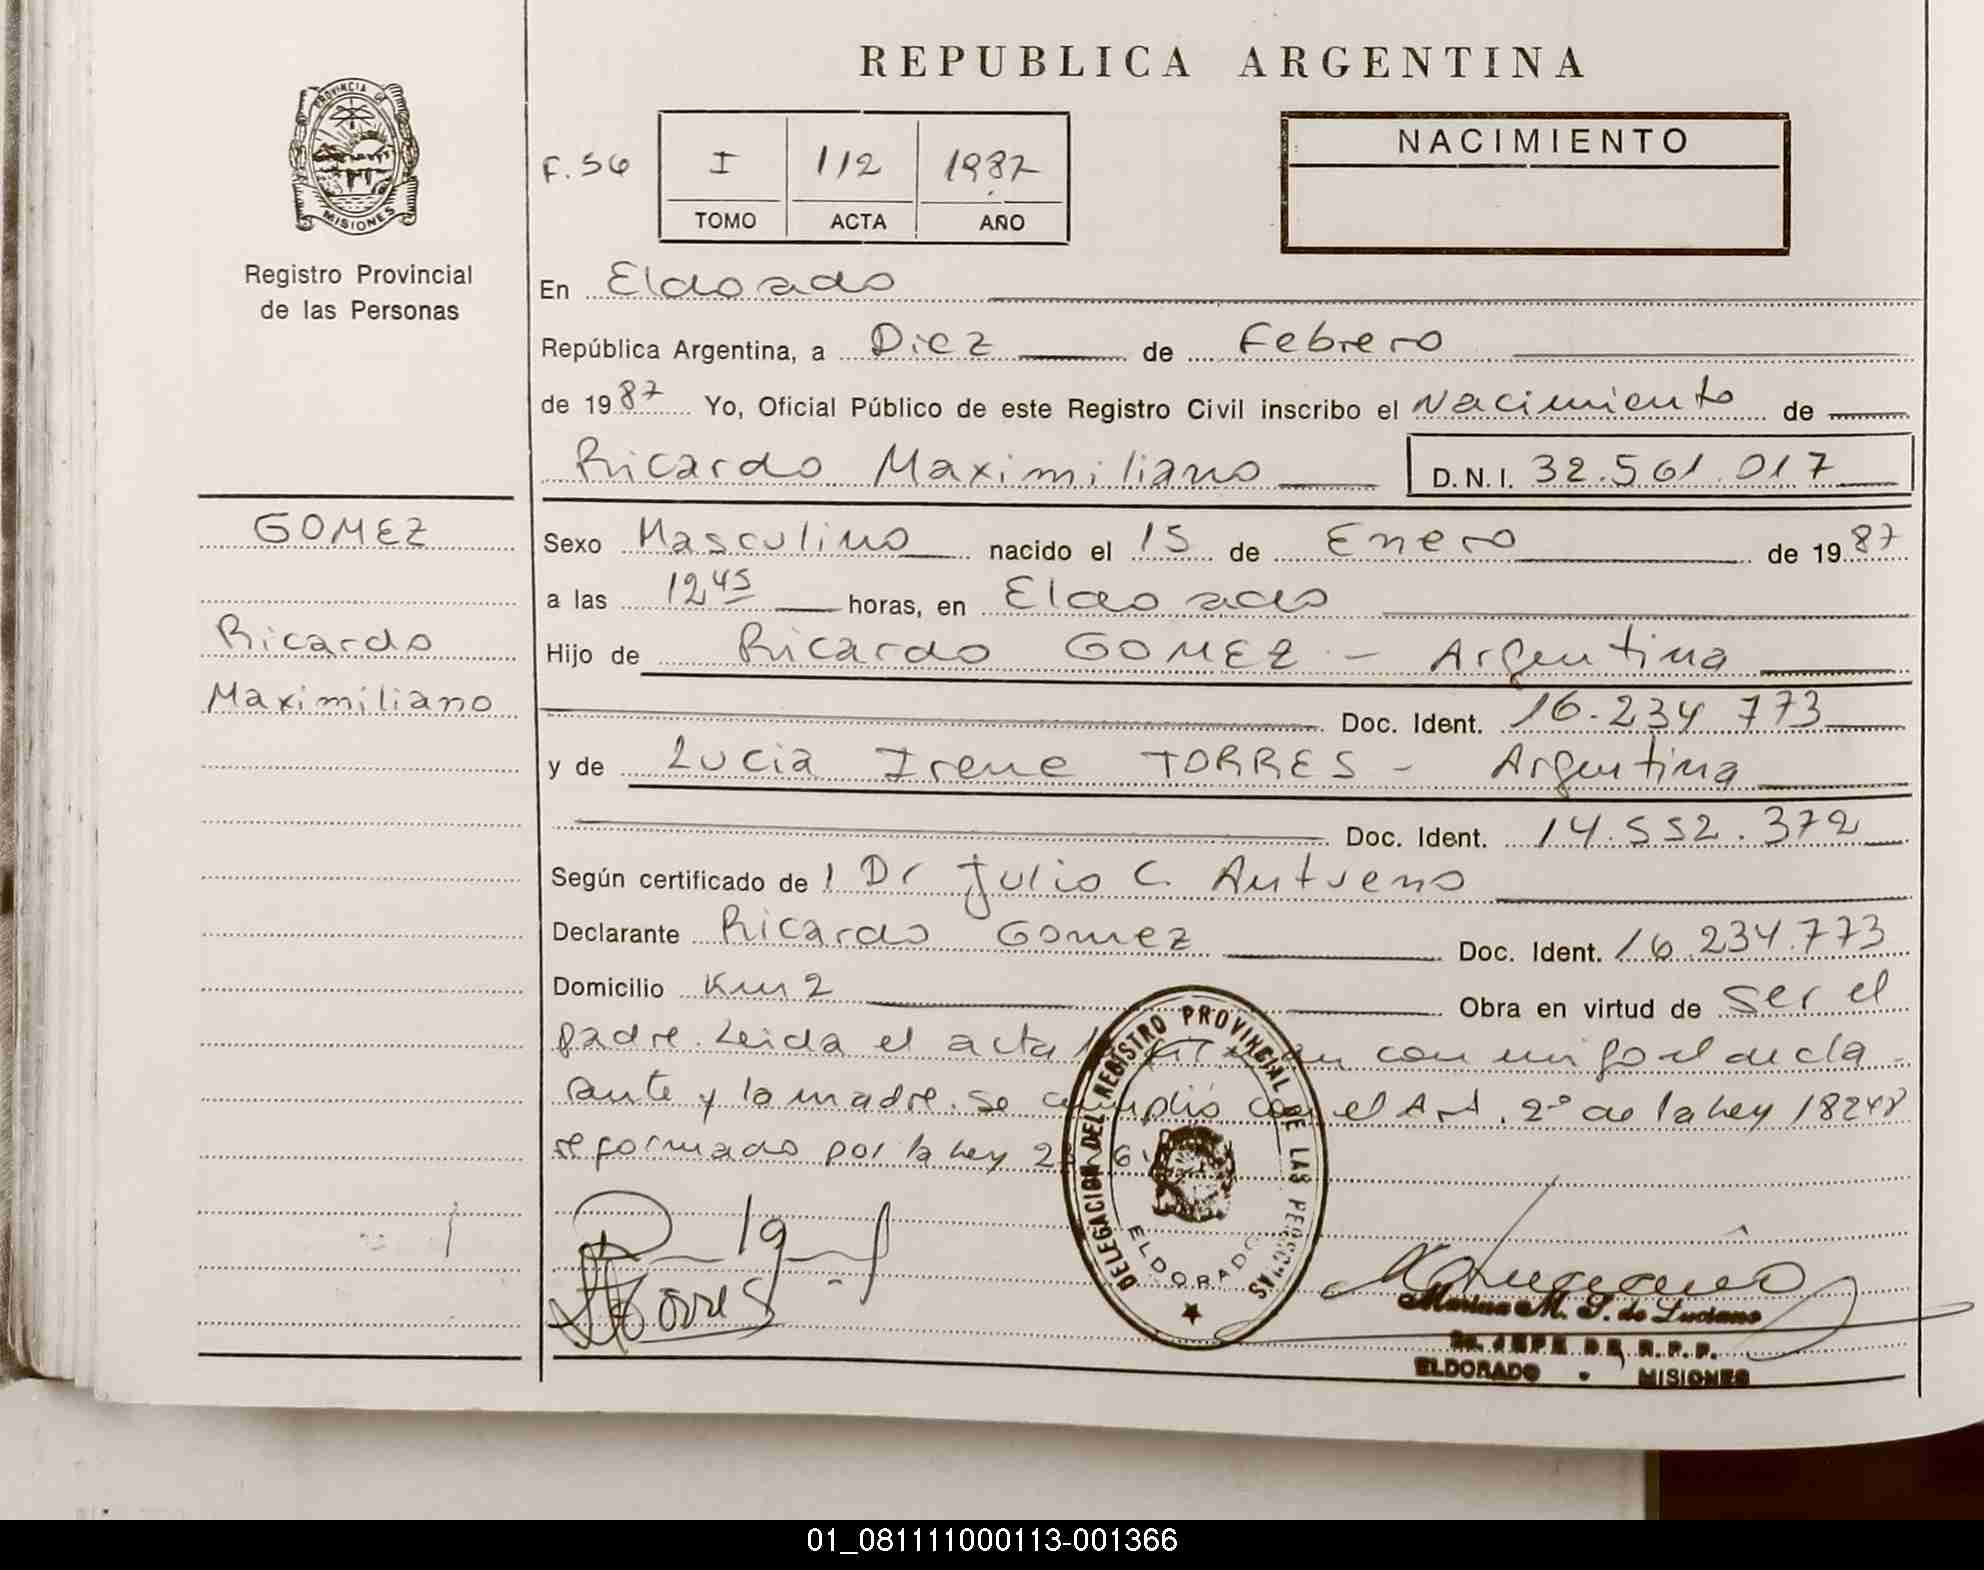 REPUBLICA ARGENTINA
PROVINCIA DE
MISIONES
Registro Provincial
de las Personas
F. 56
I
112
1987
TOMO
ACTA
AÑO
NACIMIENTO
En Eldorado
República Argentina, a Diez de Febrero
de 1987 Yo, Oficial Público de este Registro Civil inscribo el Nacimiento de
Ricardo Maximiliano D.N.I. 32.561.017
GOMEZ
Ricardo
Maximiliano
Sexo Masculino nacido el 15 de Enero de 1987
a las 12 45 horas, en Eldorado
Hijo de Ricardo GOMEZ - Argentina
Doc. Ident. 16.234.773
y de Lucia Irene TORRES - Argentina
Doc. Ident. 14.552.372
Según certificado de 1 Dr Julio C. Antueno
Declarante Ricardo Gomez Doc. Ident. 16.234.773
Domicilio Km 2 Obra en virtud de ser el
padre. Leida el acta con mi go el decla
rante y la madre. Se cumplió con el Art. 2º de la Ley 18248
reformado por la Ley
Torres
DELEGACION DEL REGISTRO PROVINCIAL DE LAS PERSONAS
ELDORADO
Marina M. S. de Luciano
JEFE DE R.P.P.
ELDORADO - MISIONES
01_081111000113-001366